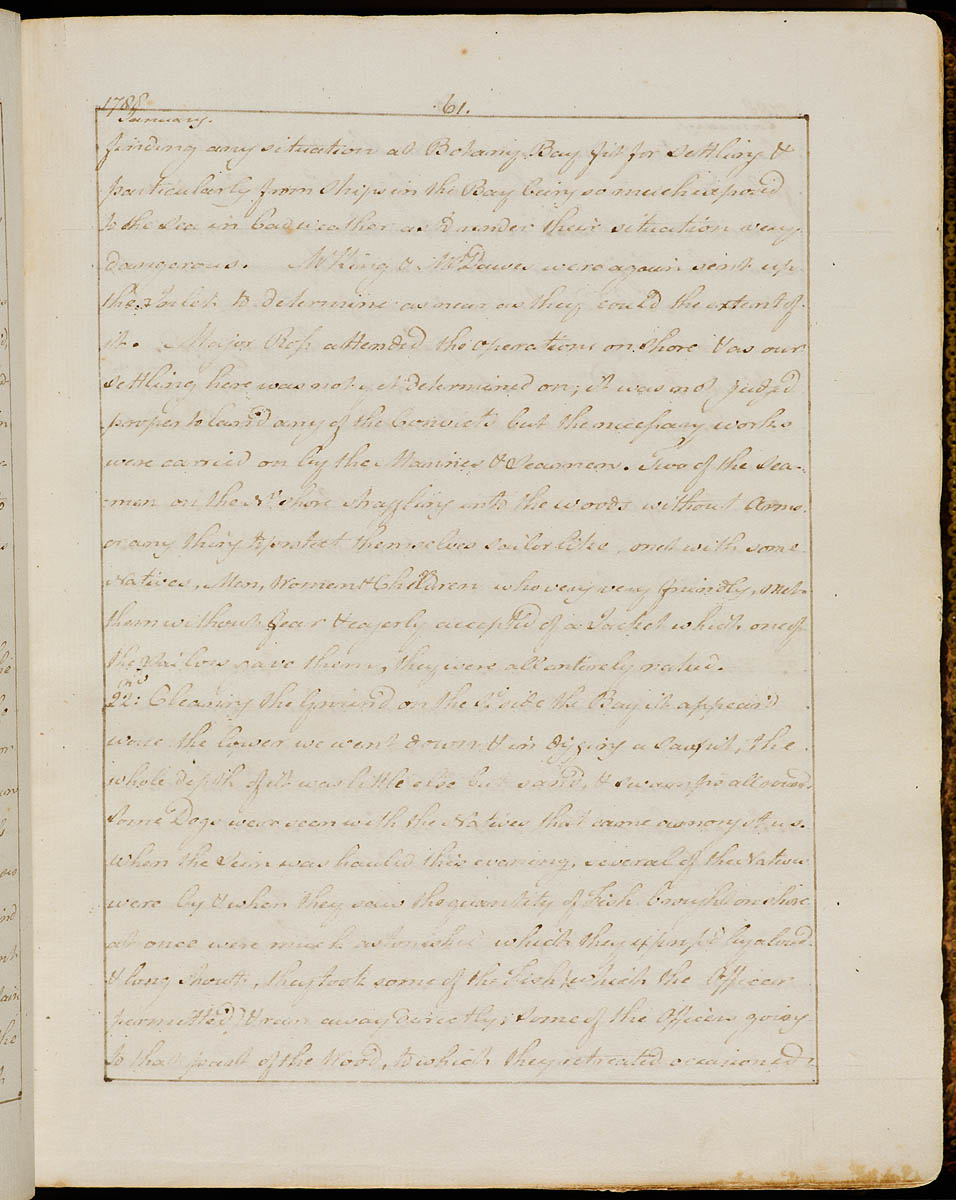 1788 61.
January.
finding any situation at Botany Bay fit for settling &
particularly from Ships in the Bay being so much expos'd
to the Sea in bad weather as to render their situation very
dangerous. Mr King & Mr Dawes were again sent up
the Inlet to determine as near as they could the extent of
it. Major Ross attended the operations on shore & as our
settling here was not yet determined on; it was not judg'd
proper to land any of the Convicts but the necessary works
were carried on by the Marines & Seamen. Two of the Sea-
-men on the No. shore straggling into the woods without Arms
or any thing to protect themselves sailor like, met with some
Natives, Men, Women & Children who very very friendly, met
them without fear & eagerly accepted of a Jacket which one of
the Sailors gave them, they were all entirely naked.
22nd: Clearing the Ground on the So. side the Bay it appear'd
worse the lower we went down & in digging a Sawpit, the
whole depth of it was little else but sand, & swamps all round.
Some Dogs were seen with the Natives that came amongst us.
when the Sein was hauled this evening, several of the Natives
were by & when they saw the quantity of Fish brought on shore
at once were much astonish'd which they express'd by a loud
& long shout, they took some of the Fish (which the Officer
permitted) & ran away directly; some of the Officers going
to that part of the Wood, to which they retreated occasioned